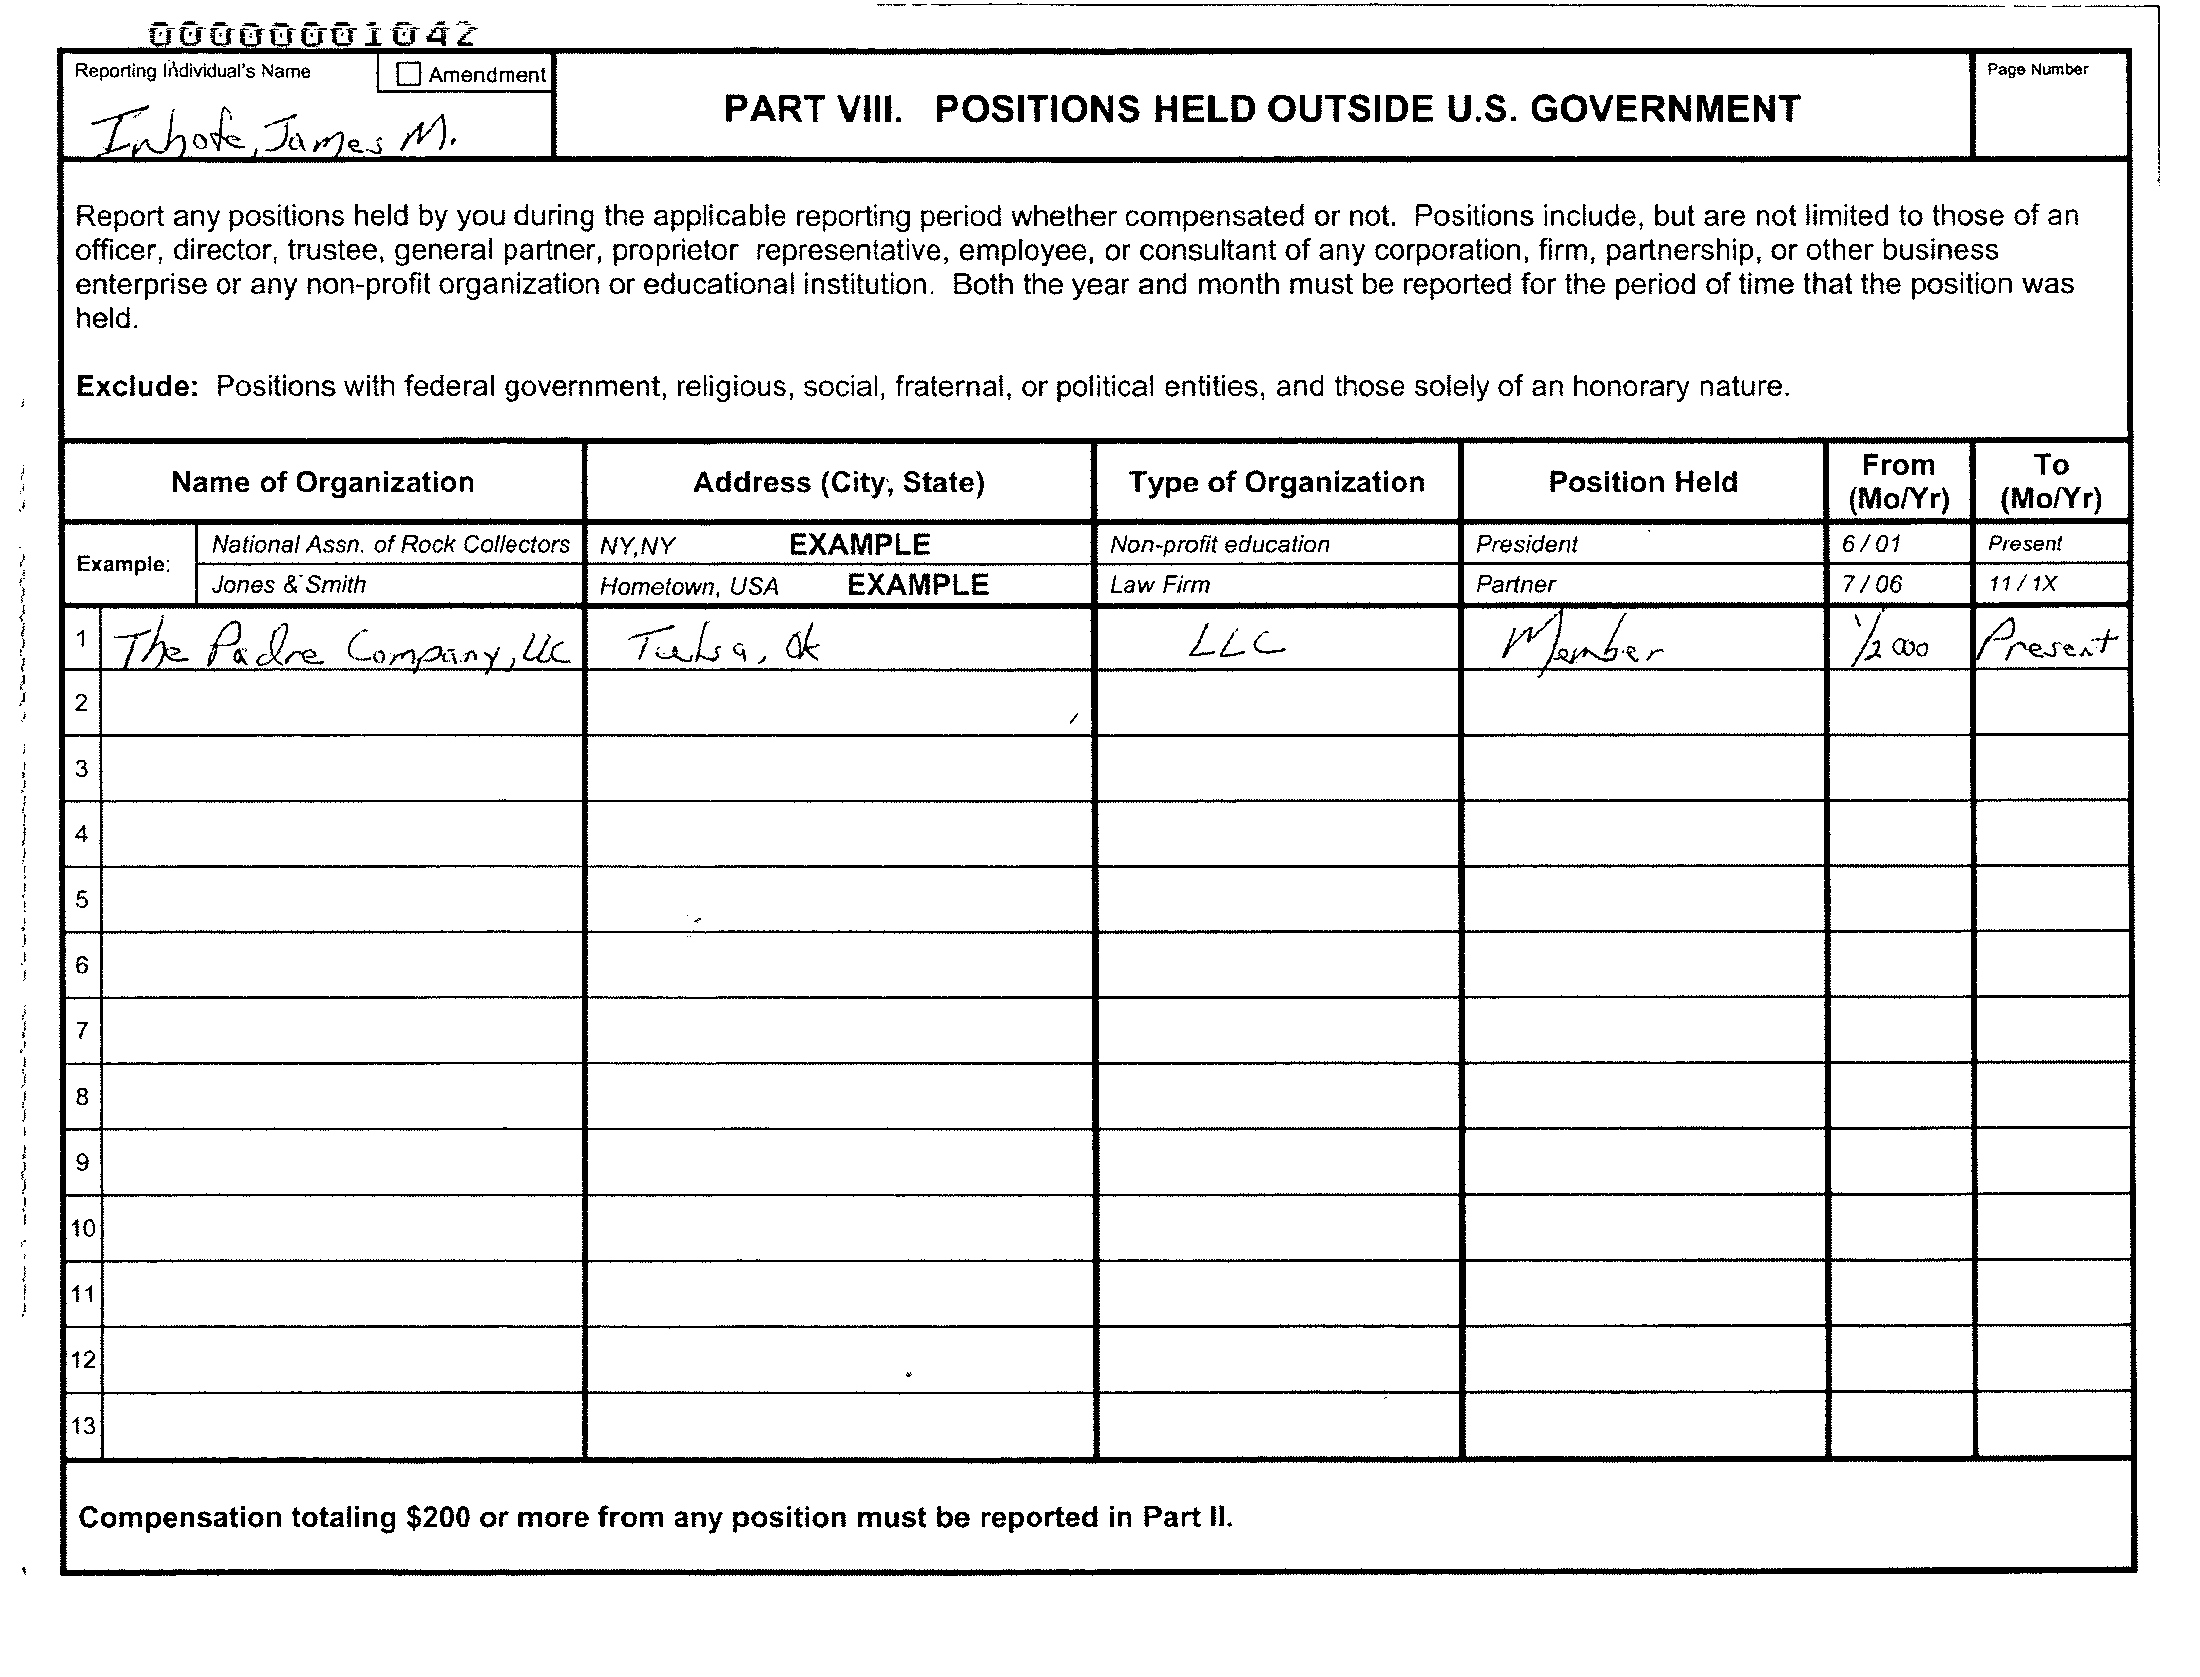 00000001042
Reporting Individual's Name
Amendment
Inhofe, James M.
PART VIII. POSITIONS HELD OUTSIDE U.S. GOVERNMENT
Page Number
Report any positions held by you during the applicable reporting period whether compensated or not. Positions include, but are not limited to those of an
officer, director, trustee, general partner, proprietor representative, employee, or consultant of any corporation, firm, partnership, or other business
enterprise or any non-profit organization or educational institution. Both the year and month must be reported for the period of time that the position was
held.
Exclude: Positions with federal government, religious, social, fraternal, or political entities, and those solely of an honorary nature.
Name of Organization Address (City, State) Type of Organization Position Held From (Mo/Yr) To (Mo/Yr)
Example:
National Assn. of Rock Collectors NY,NY EXAMPLE Non-profit education President 6 / 01 Present
Jones & Smith Hometown, USA EXAMPLE Law Firm Partner 7 / 06 11 / 1X
1 The Padre Company, LLC Tulsa, Ok LLC Member 1/2000 Present
2
3
4
5
6
7
8
9
10
11
12
13
Compensation totaling $200 or more from any position must be reported in Part II.